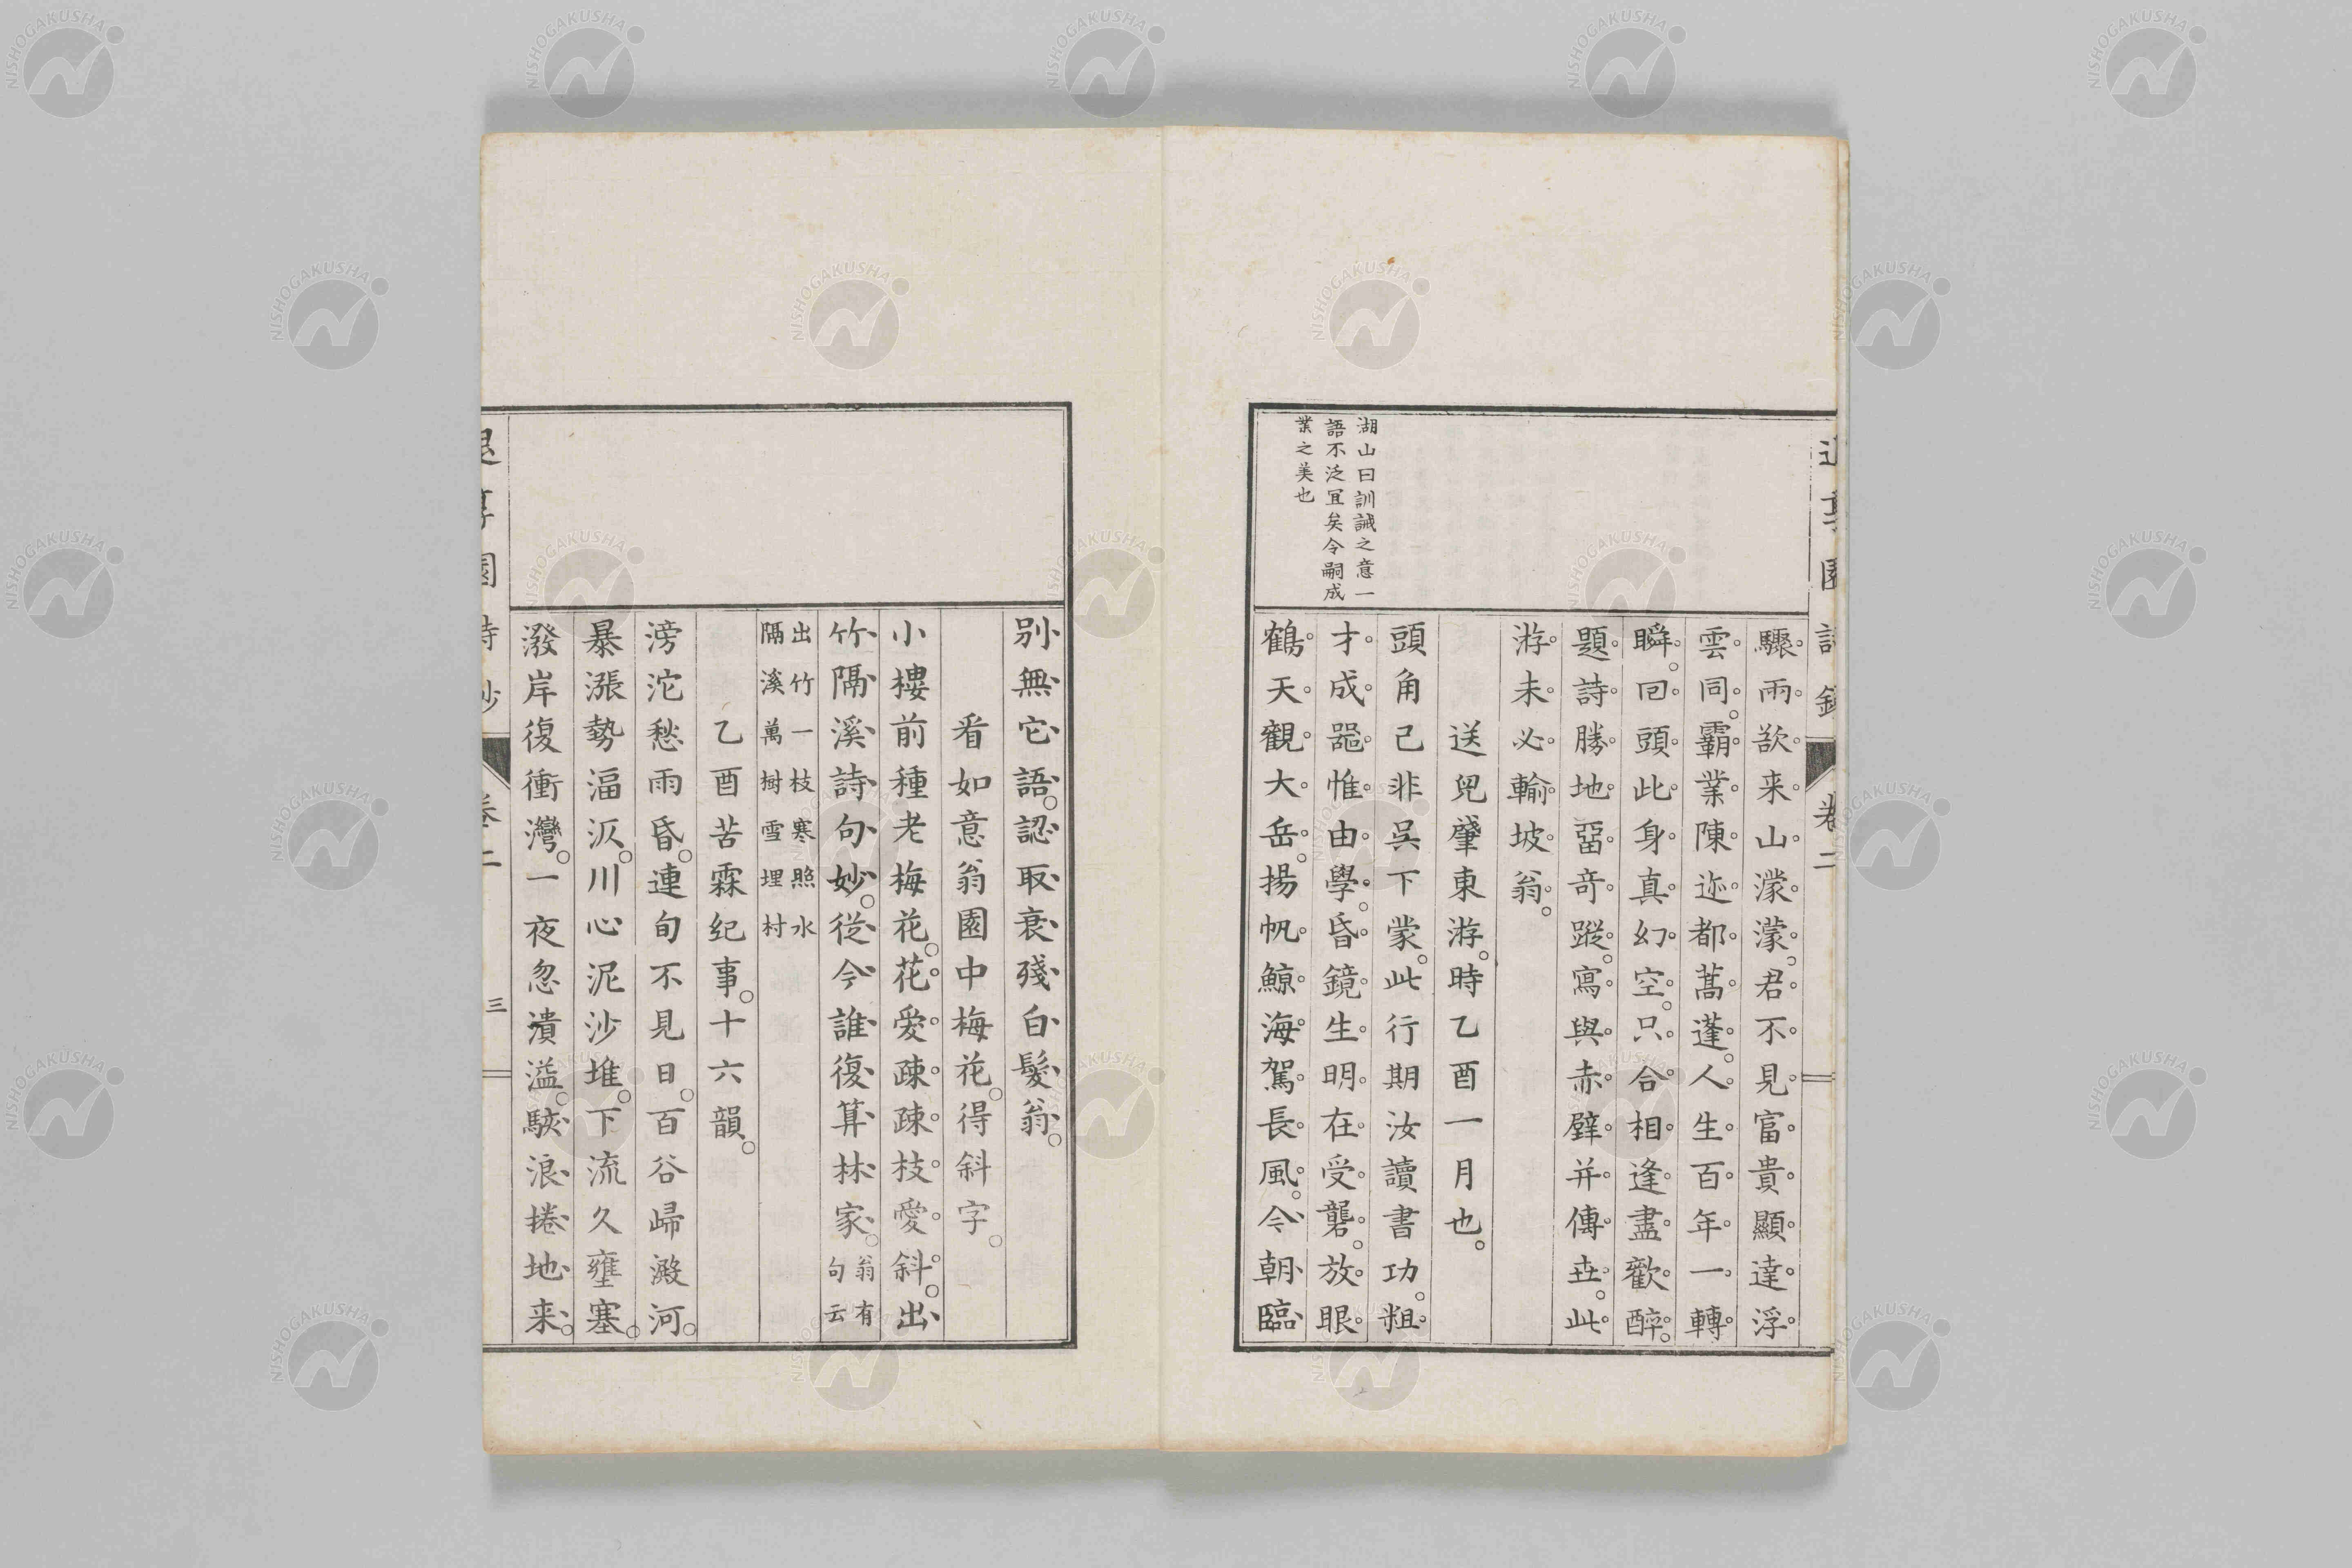 驟雨欲来山濛濛。君不見富貴顯達浮
雲同。霸業陳迹都蒿蓬。人生百年一轉
瞬。回頭此身真幻空。只合相逢盡歡醉。
題詩勝地畱奇蹤。寫與赤壁并傳㐀。此
游未必輸坡翁。
送兒肇東游。時乙酉一月也。
頭角已非呉下蒙。此行期汝讀書功。粗
才成器惟由學。昏鏡生明在受礱。放眼
鶴天觀大岳。揚帆鯨海駕長風。今朝臨
湖山曰訓誡之意一
語不泛冝矣令嗣成
業之美也
卷二
别無它語。認取衰殘白髮翁。
看如意翁園中梅花。得斜字。
小樓前種老梅花。花愛疎疎枝愛斜。出
竹隔溪詩句妙。從今誰復算林家。翁有句云
出竹一枝寒照水
隔溪萬樹雪埋村
乙酉苦霖紀事。十六韻。
滂沱愁雨昏。連旬不見日。百谷歸澱河。
暴漲勢湢汃。川心泥沙堆。下流久壅塞。
潑岸復衝灣。一夜忽潰溢。駭浪捲地来。
退享園詩鈔
卷二
三